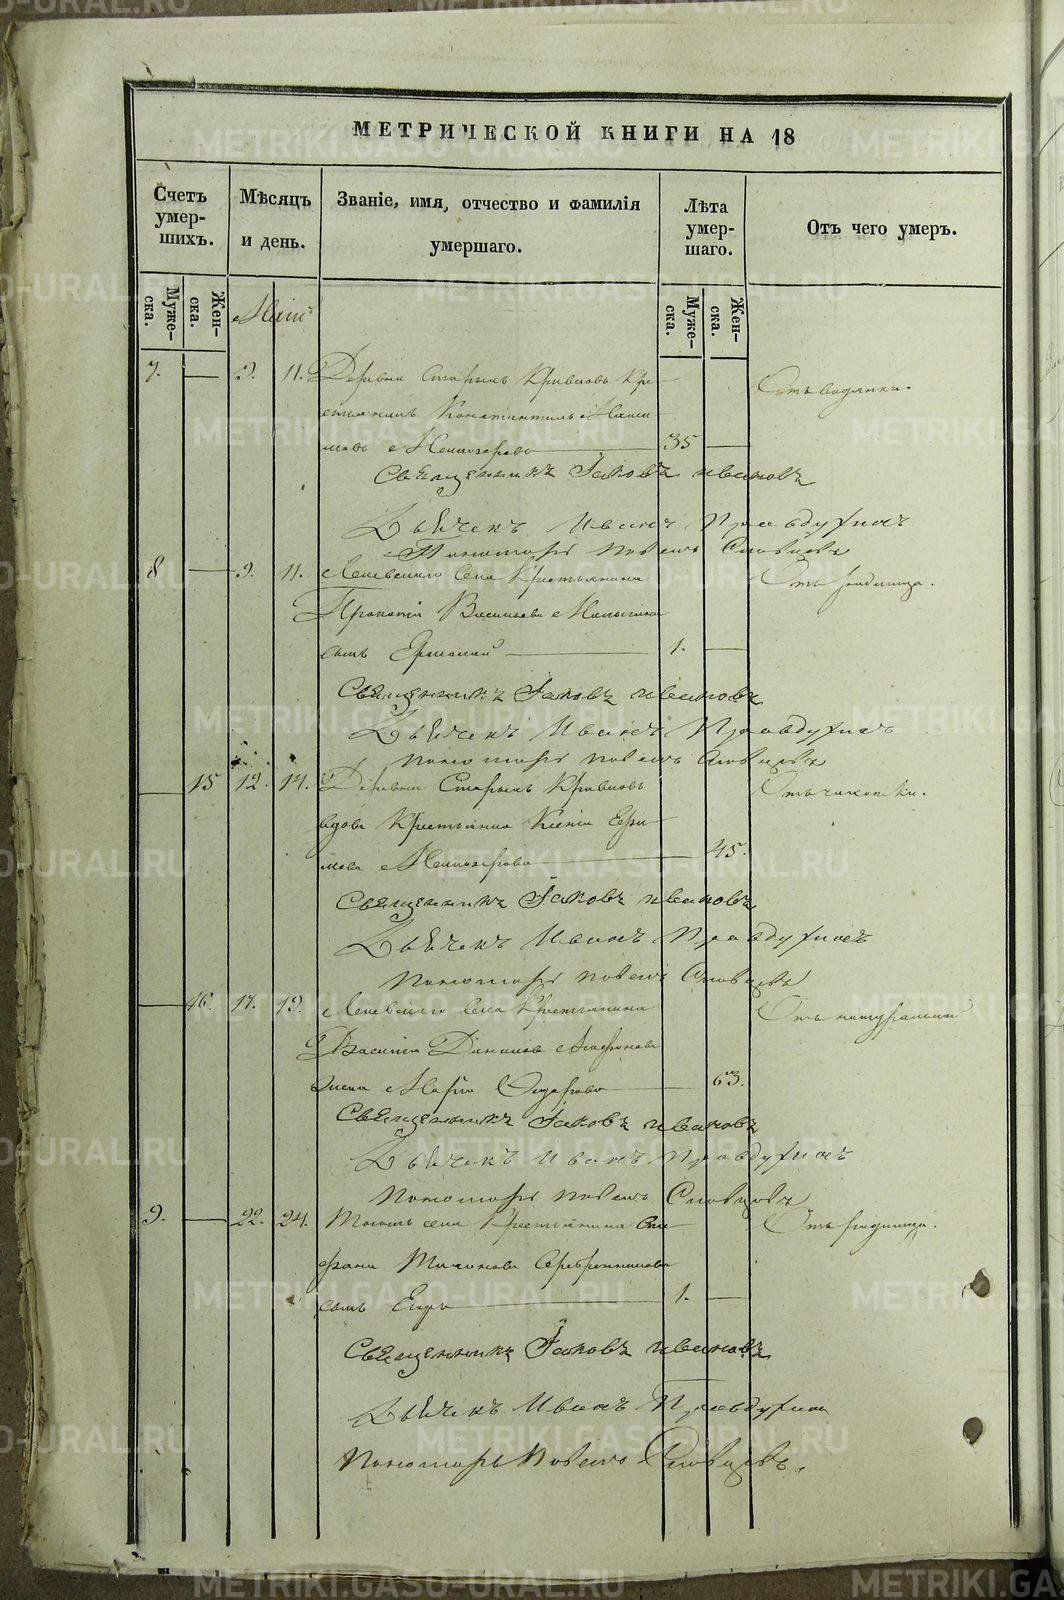 МЕТРИЧЕСКОЙ КНИГИ НА 18
Счетъ умер-шихъ.
Мѣсяцъ и день.
Званіе, имя, отчество и фамилія умершаго.
Лѣта умер-шаго.
Отъ чего умеръ.
Муже-ска.
Жен-ска.
Май
Муже-ска.
Жен-ска.
7. 9. 11. Деревни Старыхъ Кривковъ Кре-
стьянинъ Константинъ
35
Отъ водянки.
Священникъ Іаковъ Ивановъ
Дьячекъ Иванъ Правдухинъ
Пономарь Павелъ Словцовъ
8 9. 11. села Крестьянина
Прокопія Васильева
сынъ Ермолай 1.
Отъ родимца.
Священникъ Іаковъ Ивановъ
Дьячекъ Иванъ Правдухинъ
Пономарь Павелъ Словцовъ
15 12. 14. Деревни Старыхъ Кривковъ
вдова Крестьянка Ксенія Ефи-
мова 45.
Отъ чахотки.
Священникъ Іаковъ Ивановъ
Дьячекъ Иванъ Правдухинъ
Пономарь Павелъ Словцовъ
16. 17. 19. села Крестьянина
Василія Данилова
жена Марія Ѳедорова 63.
Отъ натуральной
Священникъ Іаковъ Ивановъ
Дьячекъ Иванъ Правдухинъ
Пономарь Павелъ Словцовъ
9. 22. 24. Тогожъ села Крестьянина Сте-
фана Серебренникова
сынъ Егоръ 1.
Отъ родимца.
Священникъ Іаковъ Ивановъ
Дьячекъ Иванъ Правдухинъ
Пономарь Павелъ Словцовъ.
METRIKI.GASO-URAL.RU